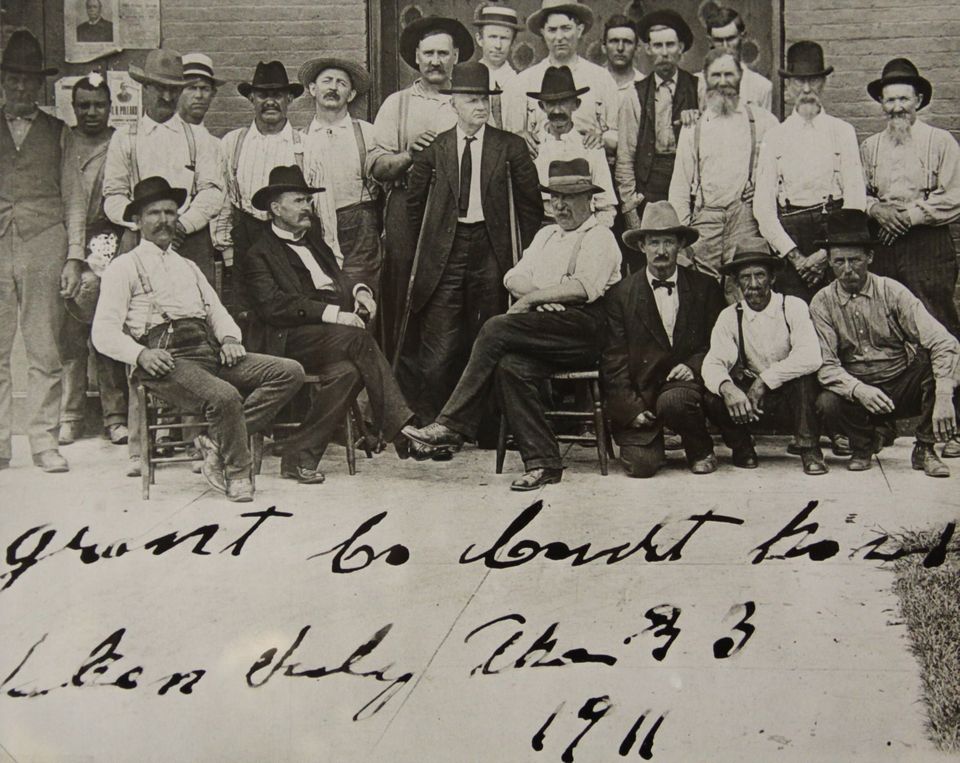 POLLARD
grant Co Court hous
taken July the 3
1911